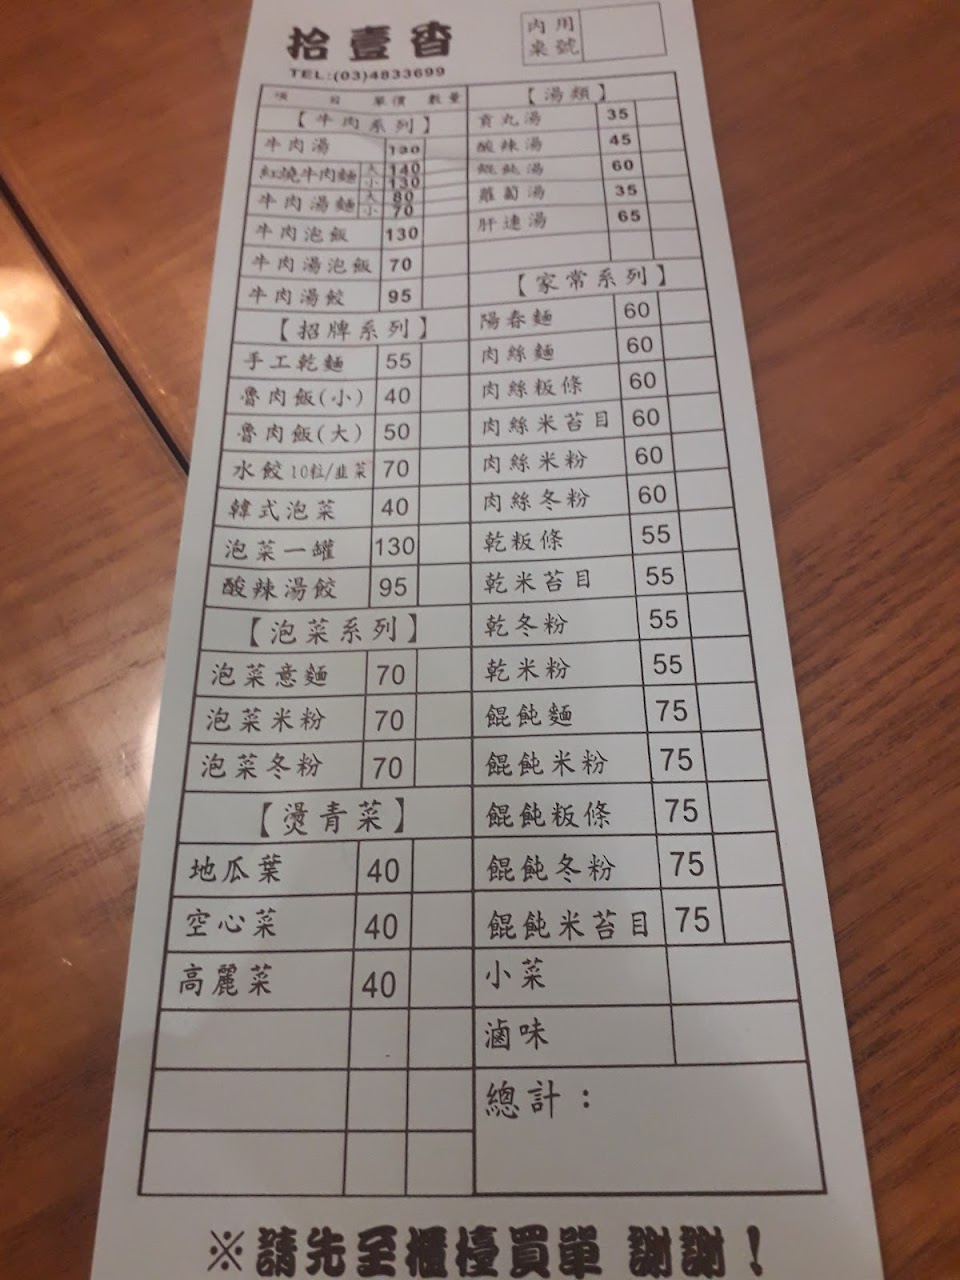 拾壹香
內用
桌號
TEL:(03)4833699
項 目 單價 數量
【牛肉系列】
牛肉湯 130
紅燒牛肉麵 大 140
小 130
牛肉湯麵 大 80
小 70
牛肉泡飯 130
牛肉湯泡飯 70
牛肉湯餃 95
【招牌系列】
手工乾麵 55
魯肉飯(小) 40
魯肉飯(大) 50
水餃10粒/韭菜 70
韓式泡菜 40
泡菜一罐 130
酸辣湯餃 95
【泡菜系列】
泡菜意麵 70
泡菜米粉 70
泡菜冬粉 70
【燙青菜】
地瓜葉 40
空心菜 40
高麗菜 40
【湯類】
貢丸湯 35
酸辣湯 45
餛飩湯 60
蘿蔔湯 35
肝連湯 65
【家常系列】
陽春麵 60
肉絲麵 60
肉絲粄條 60
肉絲米苔目 60
肉絲米粉 60
肉絲冬粉 60
乾粄條 55
乾米苔目 55
乾冬粉 55
乾米粉 55
餛飩麵 75
餛飩米粉 75
餛飩粄條 75
餛飩冬粉 75
餛飩米苔目 75
小菜
滷味
總計：
※請先至櫃檯買單 謝謝！